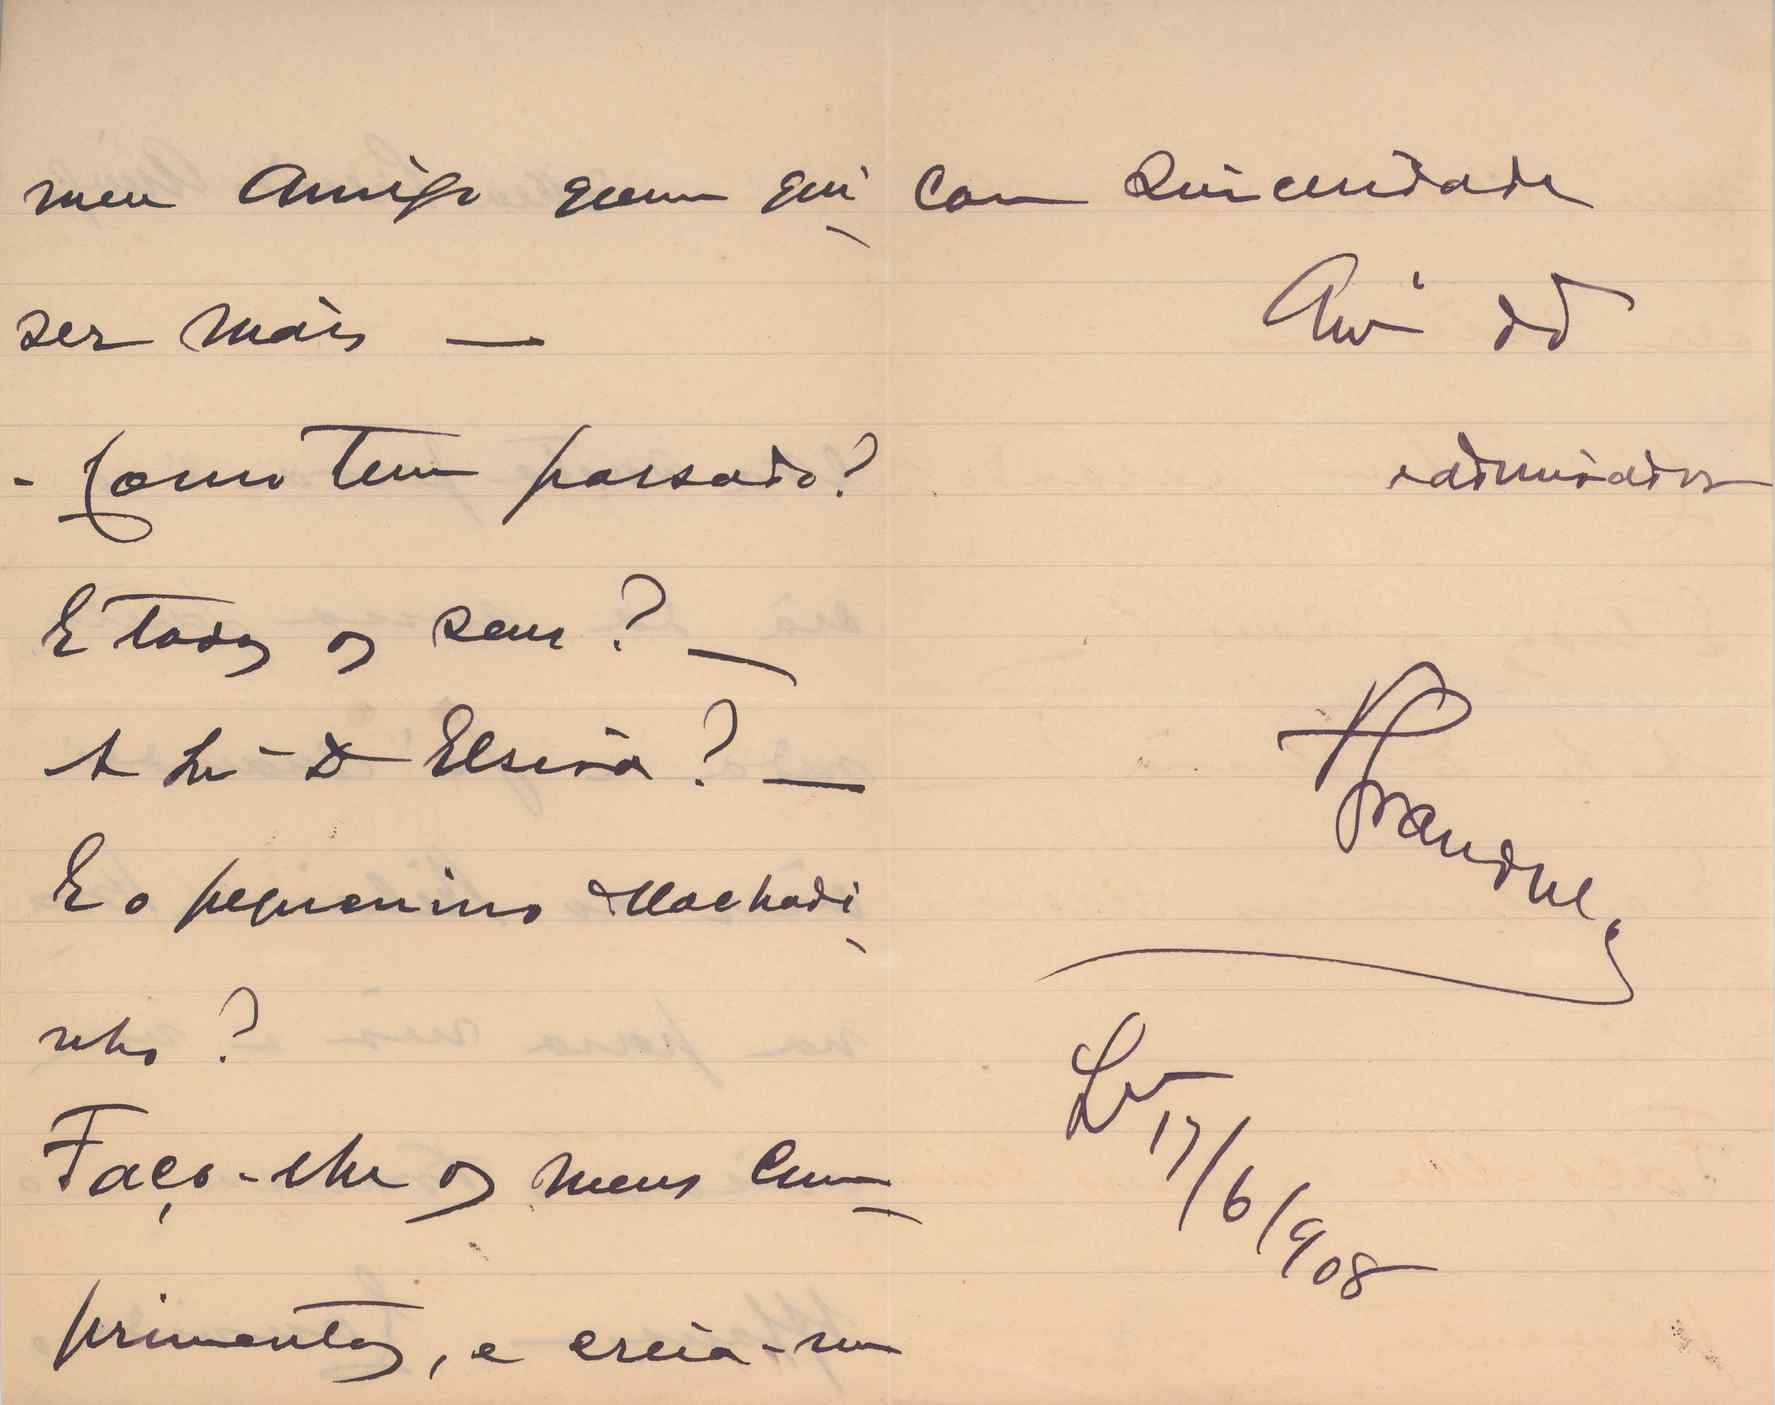 meu Amigo quem qui
ser mais —
- Como tem passado?
E todos os seus? —
A Sr.ª D Elzira? —
E o pequenino Machadi
nho?
Faço-lhe os meus cum
primentos, e creia-me
com sinceridade
Amº dd
admirador
Lx 17/6/908